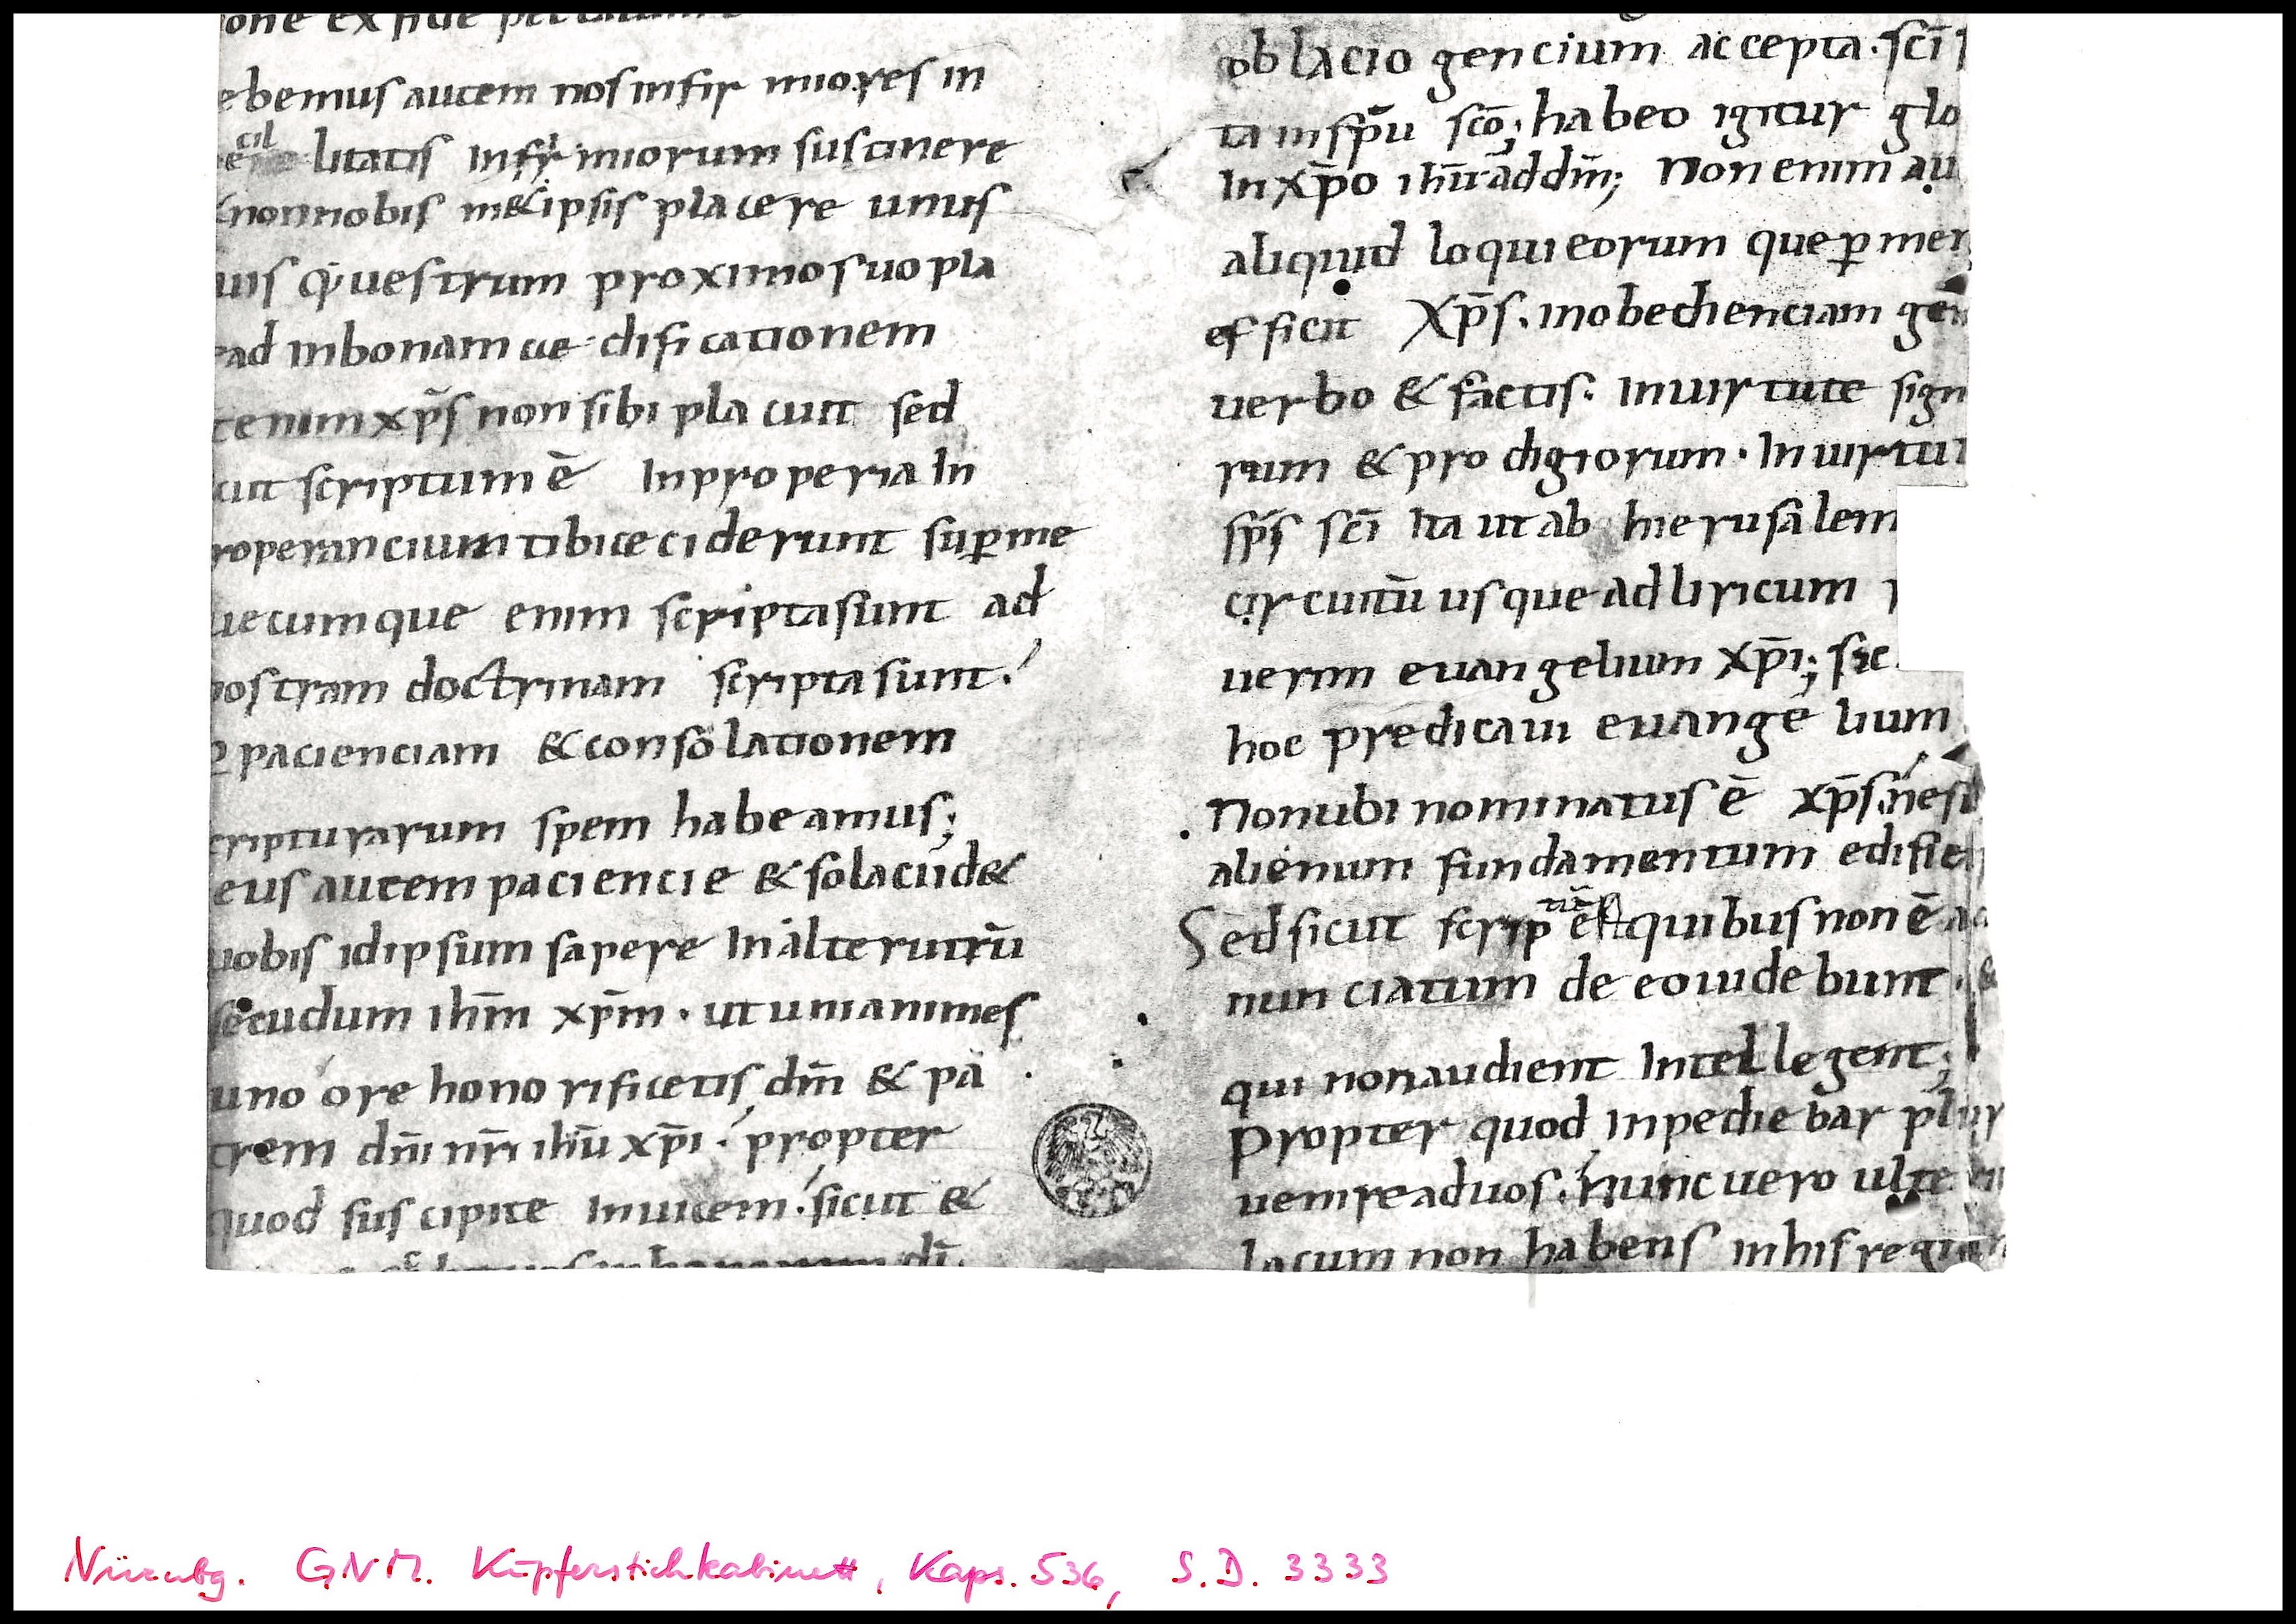 one ex fide peccatum
ebemus autem nos infir miores in
e cil litatis infirmiorum sustinere
& non nobis m&ipsis placere unus
uis q; uestrum proximo suo pla
ad in bonam ae dificationem
tenim xp̄s non sibi pla cuit sed
cut scriptum ē Inproperia In
roperancium tibi ceciderunt sup̲ me
uecumque enim scripta sunt ad
nostram doctrinam scripta sunt.
p̲ pacienciam & consolationem
cripturarum spem habeamus;
eus autem paciencie & solacii d&
uobis id ipsum sapere In alterutrū
secudum ih̄m xp̄m . ut unianimes
uno ore hono rificetis dm̄ & pa
trem dm̄i nr̄i ih̄u xp̄i . propter
quod sus cipite Inuicem . sicut &
dī.
oblacio gencium accepta . scī
ta in sp̄u scō; habeo igitur glo
In xp̄o ih̄u ad dm̄; Non enim au
aliquid loqui eorum que p̲ me
efficit Xp̄s . in obedienciam gen
uerbo & factis . In uirtute sign
rum & pro digiorum . In uirtu
sp̄s scī Ita ut ab hierusalem
circuitū usque ad liricum
uerim euangelium xp̄i; sic
hoc predicaui euange lium
Non ubi nominatus ē xp̄s . ne s
alienum fundamentum edific
Sed sicut scrip tū ē quibus non ē a
nun ciatum de eo uidebunt . &
qui non audient Intellegent;
Propter quod Inpedie bar plur
uenire ad uos . nunc uero ulte
locum non habens in his regi
Nürnbg. GNM. Kupferstichkabinett, Kaps. 536, S.D. 3333